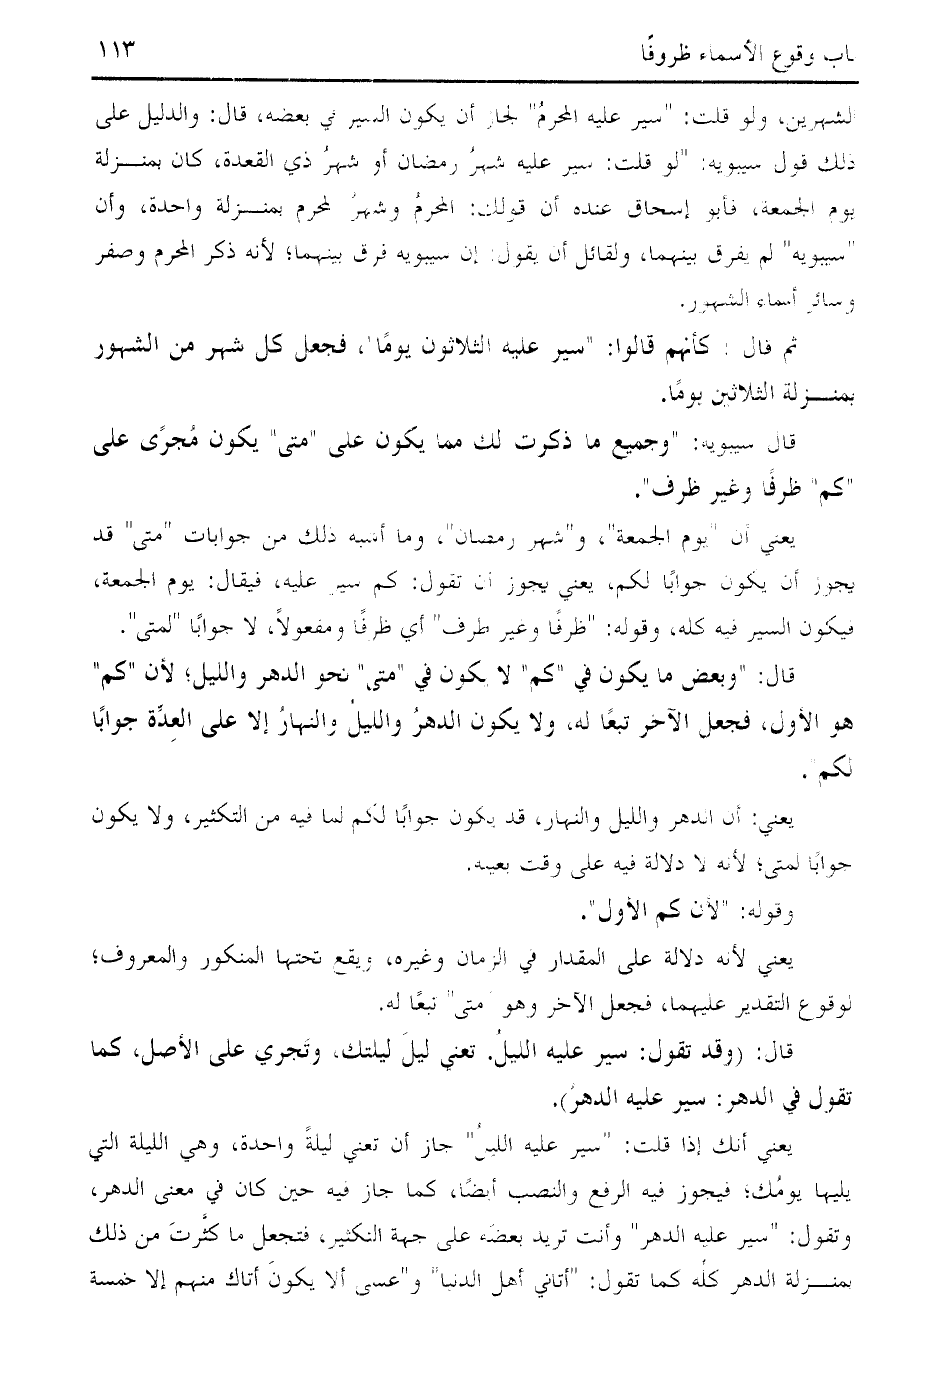 باب وقوع الأسماء ظروفًا ١١٣
الشهرين، ولو قلت: "سير عليه المحرمُ" لجاز أن يكون السير في بعضه، قال: والدليل على
ذلك قول سيبويه: "لو قلت: سير عليه شهرُ رمضان أو شهرُ ذي القعدة، كان بمنـزلة
يوم الجمعة، فأبو إسحاق عنده أن قولك: المحرمُ وشهرُ المحرم بمنـزلة واحدة، وأن
"سيبويه" لم يفرق بينهما، ولقائل أن يقول: إن سيبويه فرق بينهما؛ لأنه ذكر المحرم وصفر
وسائر أسماء الشهور.
ثم قال : كأنهم قالوا: "سير عليه الثلاثون يومًا"، فجعل كل شهر من الشهور
بمنـزلة الثلاثين يومًا.
قال سيبويه: "وجميع ما ذكرت لك مما يكون على "متى" يكون مُجرًى على
"كم" ظرفًا وغير ظرف".
يعني أن "يوم الجمعة"، و"شهر رمضان"، وما أشبه ذلك من جوابات "متى" قد
يجوز أن يكون جوابًا لكم، يعني يجوز أن تقول: كم سير عليه، فيقال: يوم الجمعة،
فيكون السير فيه كله، وقوله: "ظرفًا وغير ظرف" أي ظرفًا ومفعولاً، لا جوابًا "لمتى".
قال: "وبعض ما يكون في "كم" لا يكون في "متى" نحو الدهر والليل؛ لأن "كم"
هو الأول، فجعل الآخر تبعًا له، ولا يكون الدهرُ والليلُ والنهارُ إلا على العِدَّة جوابًا
لكم".
يعني: أن الدهر والليل والنهار، قد يكون جوابًا لكم لما فيه من التكثير، ولا يكون
جوابًا لمتى؛ لأنه لا دلالة فيه على وقت بعينه.
وقوله: "لأن كم الأول".
يعني لأنه دلالة على المقدار في الزمان وغيره، ويقع تحتها المنكور والمعروف؛
لوقوع التقدير عليهما، فجعل الآخر وهو "متى" تبعًا له.
قال: (وقد تقول: سير عليه الليلُ. تعني ليلَ ليلتك، وتَجري على الأصل، كما
تقول في الدهر: سير عليه الدهرُ).
يعني أنك إذا قلت: "سير عليه الليلُ" جاز أن تعني ليلةً واحدة، وهي الليلة التي
يليها يومُك؛ فيجوز فيه الرفع والنصب أيضًا، كما جاز فيه حين كان في معنى الدهر،
وتقول: "سير عليه الدهر" وأنت تريد بعضَه على جهة التكثير، فتجعل ما كثَّرتَ من ذلك
بمنـزلة الدهر كلِّه كما تقول: "أتاني أهل الدنيا" و"عسى ألا يكونَ أتاك منهم إلا خمسة